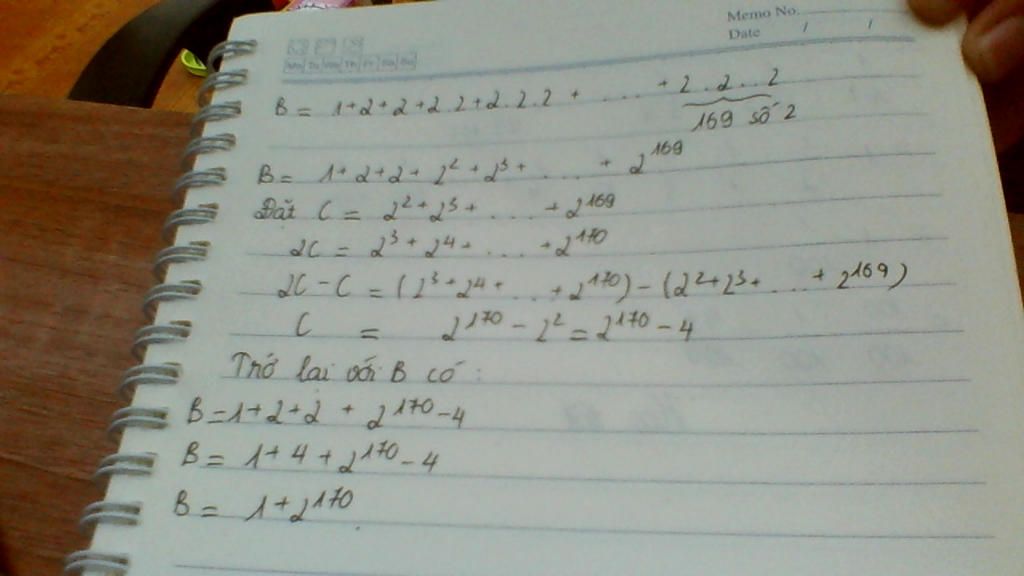 Memo No.
Date / /
Mo Tu We Th Fr Sa Su
B = 1+2+2+2.2+2.2.2 + .... + 2.2...2
169 số 2
B = 1+2+2+2²+2³+ .... + 2¹⁶⁹
Đặt C = 2²+2³+ .... +2¹⁶⁹
2C = 2³+2⁴+ .... +2¹⁷⁰
2C-C = (2³+2⁴+ ... +2¹⁷⁰)-(2²+2³+ ... +2¹⁶⁹)
C = 2¹⁷⁰-2²=2¹⁷⁰-4
Trở lại với B có:
B=1+2+2+2¹⁷⁰-4
B = 1+4+2¹⁷⁰-4
B = 1+2¹⁷⁰